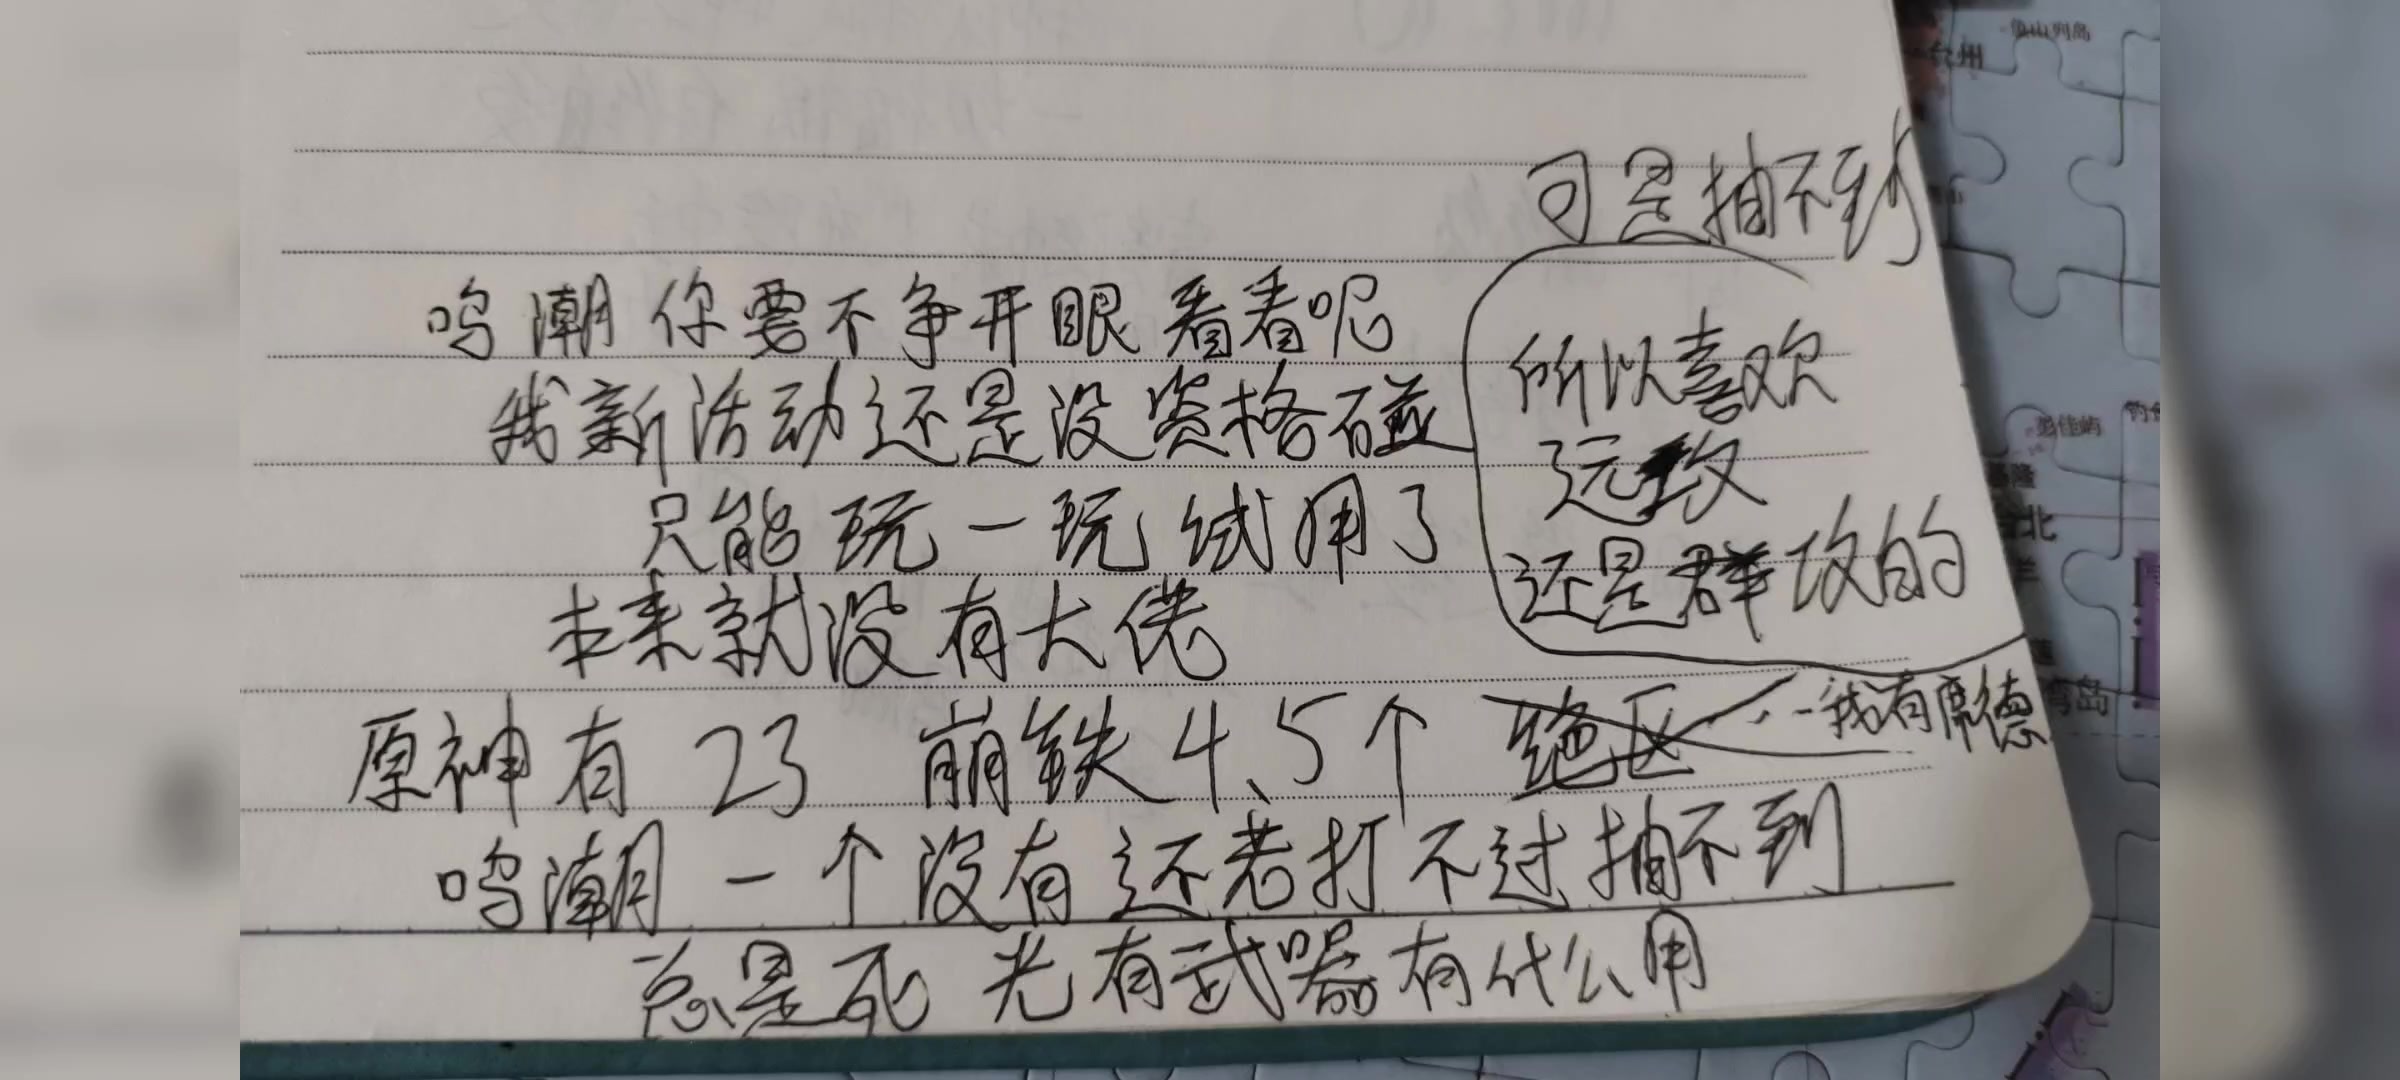 可是抽不到
鸣潮你要不争开眼看看呢
所以喜欢
我新活动还是没资格碰
远攻
只能玩一玩试用了
还是群攻的
本来就没有大佬
原神有23 崩铁4、5个 绝区 我有席德
鸣潮一个没有还老打不过抽不到
总是死 光有武器有什么用
台州
彭佳屿